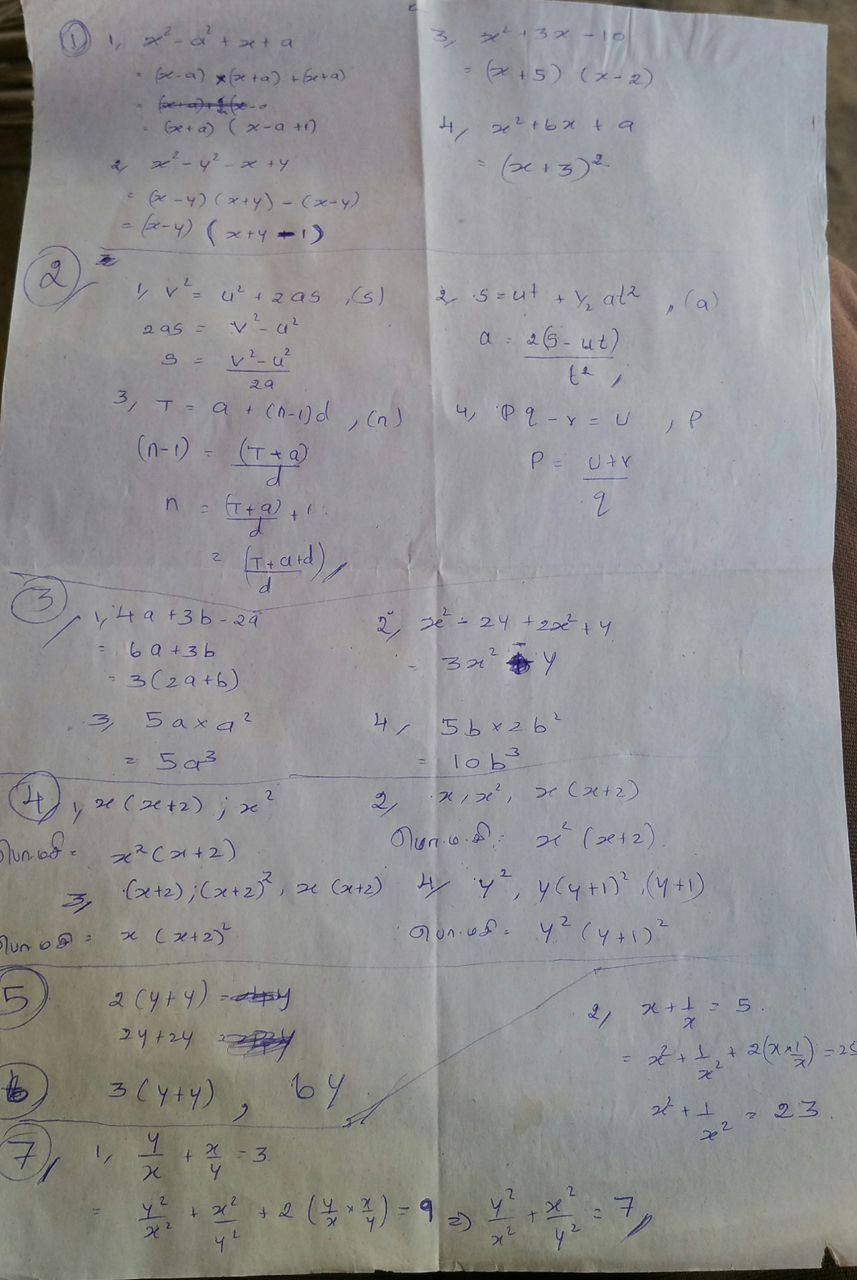 ① 1, x² - a² + x + a
= (x-a) (x+a) + (x+a)
= (x+a) (x-a+1)
2, x² - y² - x + y
= (x-y) (x+y) - (x-y)
= (x-y) (x+y-1)
3, x² + 3x - 10
= (x+5) (x-2)
4, x² + 6x + a
= (x+3)²
② 1, v² = u² + 2as, (s)
2as = v² - u²
s = v² - u² / 2a
2, s = ut + 1/2 at², (a)
a = 2(s - ut) / t²,
3, T = a + (n-1)d, (n)
(n-1) = (T+a) / d
n = (T+a) / d + 1
= (T+a+d) / d
4, Pq - r = u, P
P = u+r / q
③ 1, 4a + 3b - 2a
= 6a + 3b
= 3(2a+b)
2, x² - 2y + 2x² + y
= 3x² - y
3, 5a × a²
= 5a³
4, 5b × 2b²
= 10b³
④ 1, x(x+2) ; x²
பொ.ம.சி = x²(x+2)
2, x, x², x(x+2)
பொ.ம.சி = x²(x+2)
3, (x+2) ; (x+2)², x(x+2)
பொ.ம.சி = x(x+2)²
4, y², y(y+1)², (y+1)
பொ.ம.சி = y²(y+1)²
⑤ 2(y+y) =
2y+2y
⑥ 3(y+y), 6y
⑦ 1, y/x + x/y = 3
= y²/x² + x²/y² + 2(y/x × x/y) = 9 ⇒ y²/x² + x²/y² = 7
2, x + 1/x = 5
= x² + 1/x² + 2(x × 1/x) = 25
x² + 1/x² = 23